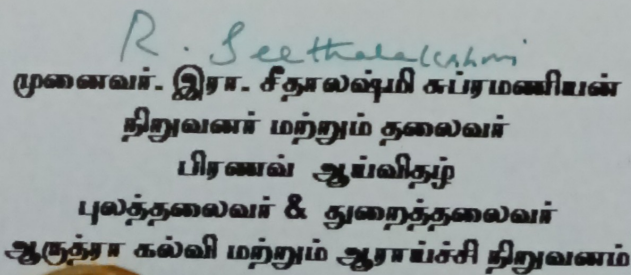 R. Seethalakshmi
முனைவர். இரா. சீதாலஷ்மி சுப்ரமணியன்
நிறுவனர் மற்றும் தலைவர்
பிரணவ் ஆய்விதழ்
புலத்தலைவர் & துறைத்தலைவர்
ஆருத்ரா கல்வி மற்றும் ஆராய்ச்சி நிறுவனம்